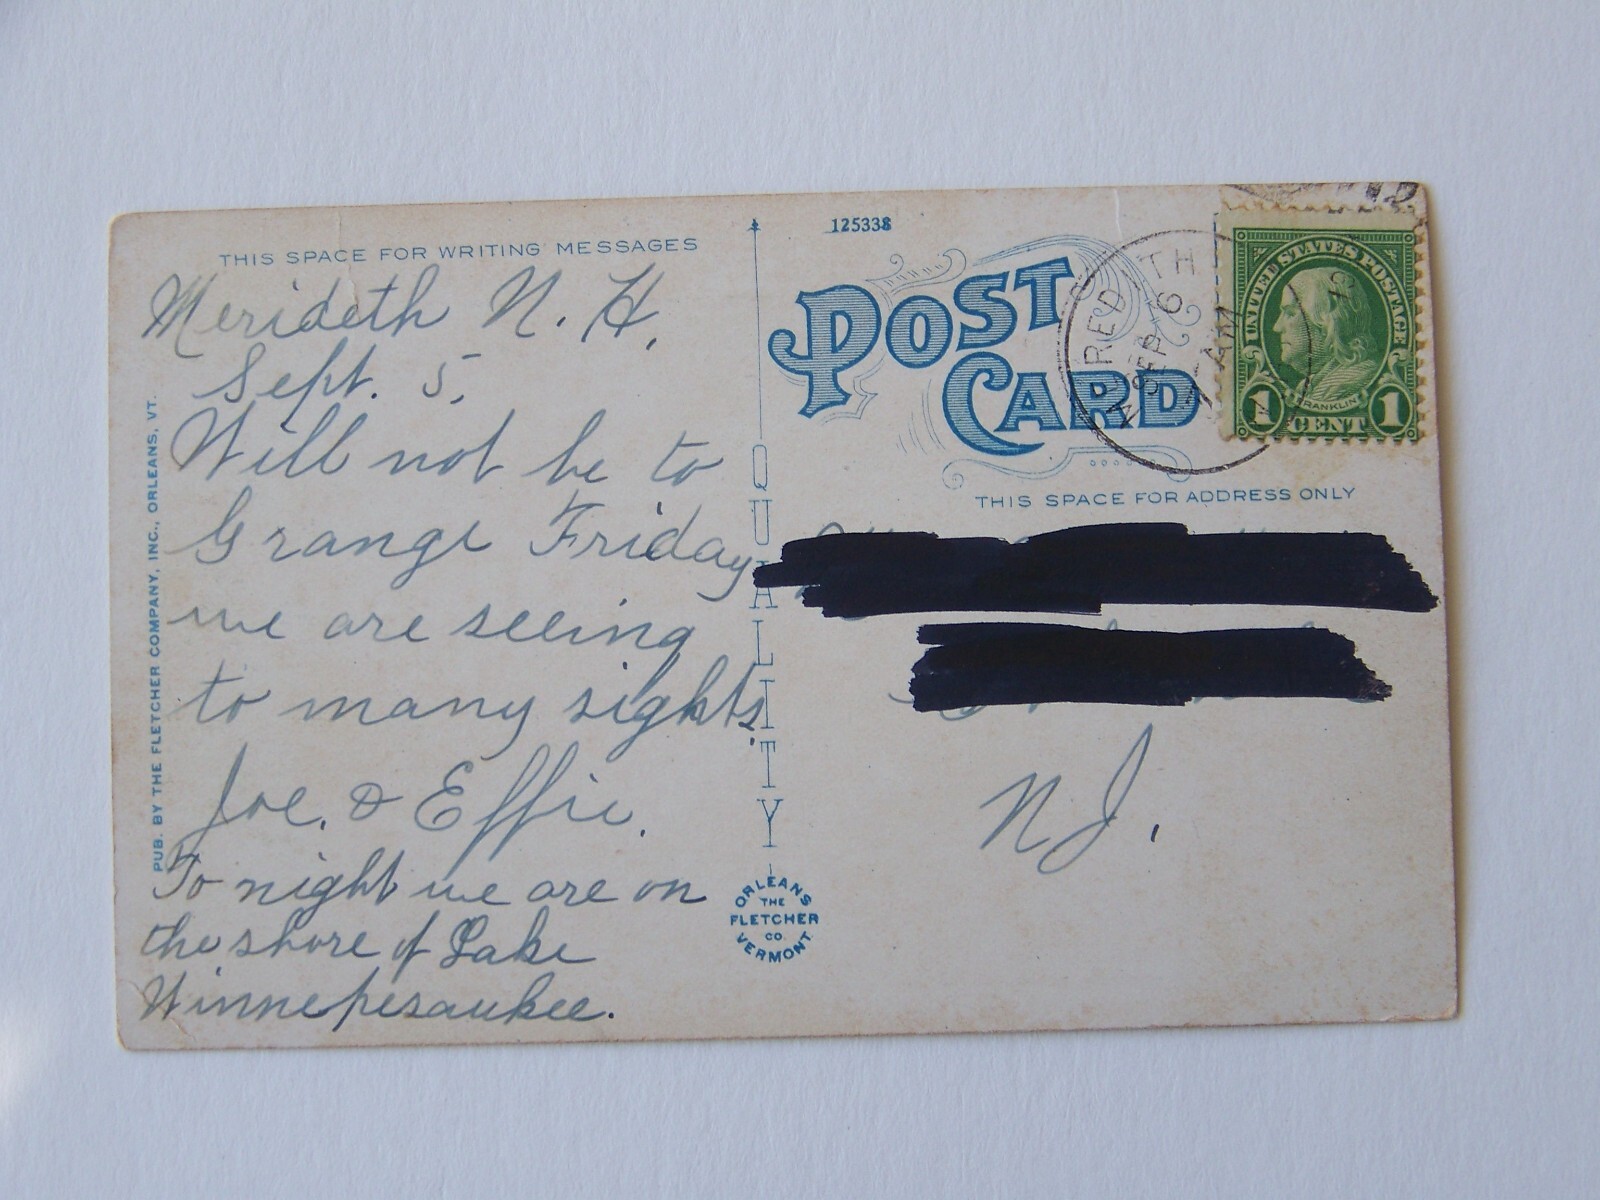 THIS SPACE FOR WRITING MESSAGES
Merideth N. H.
Sept. 5,
Will not be to
Grange Friday
we are seeing
to many sights.
Joe. & Effie.
To night we are on
the shore of Lake
Winnepesaukee.
PUB. BY THE FLETCHER COMPANY, INC., ORLEANS, VT.
QUALITY
ORLEANS
THE
FLETCHER
CO.
VERMONT
125338
POST
CARD
SEP 6
7 AM
UNITED STATES POSTAGE
FRANKLIN
1 CENT 1
THIS SPACE FOR ADDRESS ONLY
N J.